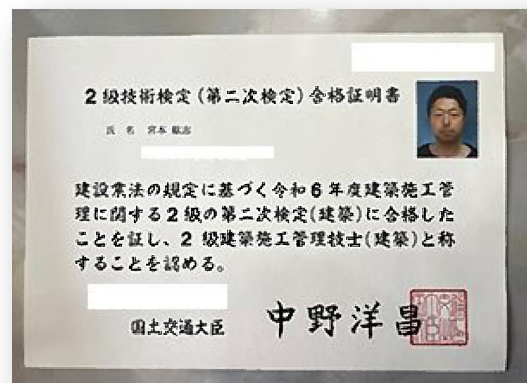 2級技術検定(第二次検定)合格証明書
氏 名 宮本
建設業法の規定に基づく令和6年度建築施工管
理に関する2級の第二次検定(建築)に合格した
ことを証し、2 級建築施工管理技士(建築)と称
することを認める。
国土交通大臣 中野洋昌